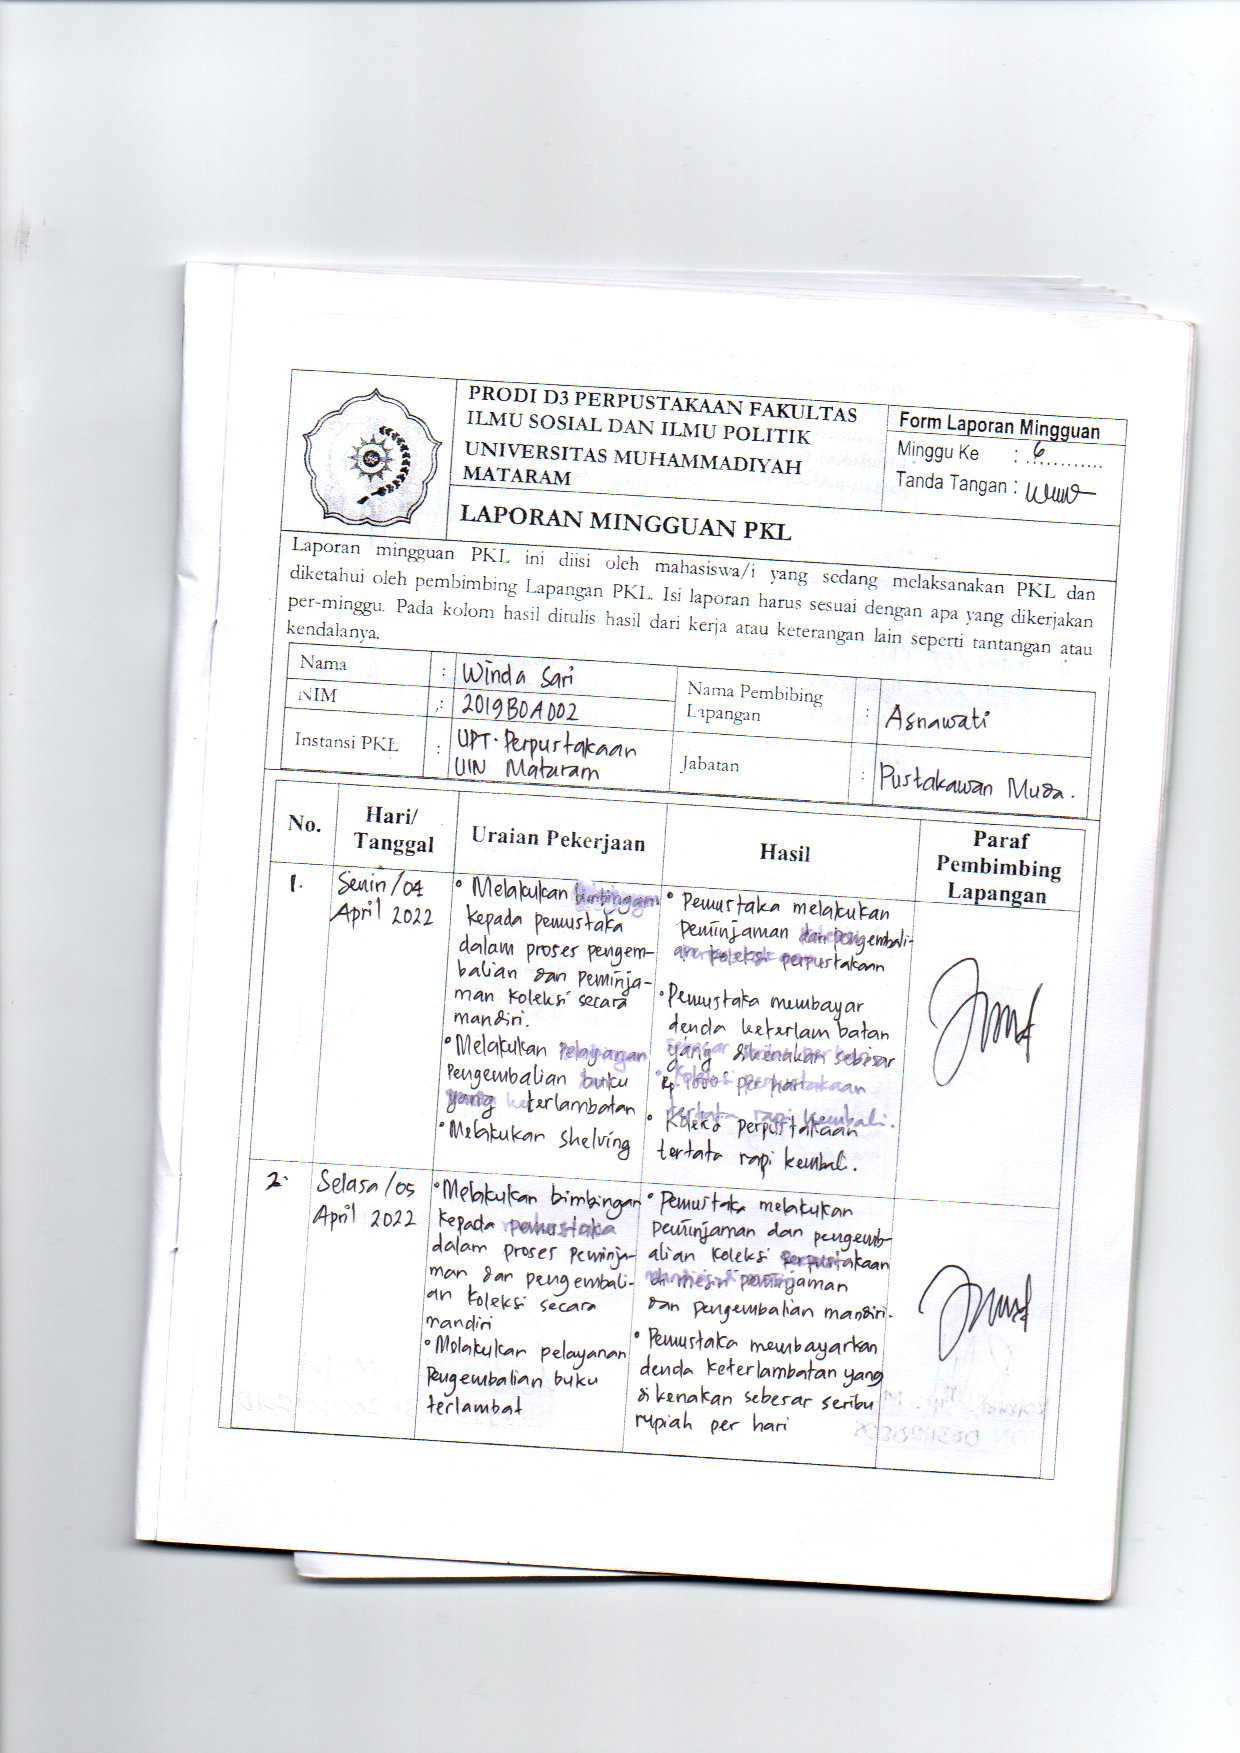 PRODI D3 PERPUSTAKAAN FAKULTAS
ILMU SOSIAL DAN ILMU POLITIK
UNIVERSITAS MUHAMMADIYAH
MATARAM
LAPORAN MINGGUAN PKL
Form Laporan Mingguan
Minggu Ke : 6
Tanda Tangan :
Laporan mingguan PKL ini diisi oleh mahasiswa/i yang sedang melaksanakan PKL dan
diketahui oleh pembimbing Lapangan PKL. Isi laporan harus sesuai dengan apa yang dikerjakan
per-minggu. Pada kolom hasil ditulis hasil dari kerja atau keterangan lain seperti tantangan atau
kendalanya.
Nama : Winda Sari
NIM : 2019B0A002
Instansi PKL : UPT. Perpustakaan
UIN Mataram
Nama Pembibing
Lapangan : Asnawati
Jabatan : Pustakawan Muda.
No.
Hari/
Tanggal
Uraian Pekerjaan
Hasil
Paraf
Pembimbing
Lapangan
1.
Senin/04
April 2022
• Melakukan bimbingan
kepada pemustaka
dalam proses pengem-
balian dan peminja-
man koleksi secara
mandiri.
• Melakukan pelayanan
pengembalian buku
yang keterlambatan
• Melakukan shelving
• Pemustaka melakukan
peminjaman dan pengembali-
an koleksi perpustakaan
• Pemustaka membayar
denda keterlambatan
yang dikenakan sebesar
Rp 1000 per hari
• Koleksi perpustakaan
tertata rapi kembali.
2.
Selasa/05
April 2022
• Melakukan bimbingan
kepada pemustaka
dalam proses peminja-
man dan pengembali-
an koleksi secara
mandiri
• Melakukan pelayanan
pengembalian buku
terlambat
• Pemustaka melakukan
peminjaman dan pengemb-
alian koleksi perpustakaan
di mesin peminjaman
dan pengembalian mandiri.
• Pemustaka membayarkan
denda keterlambatan yang
dikenakan sebesar seribu
rupiah per hari